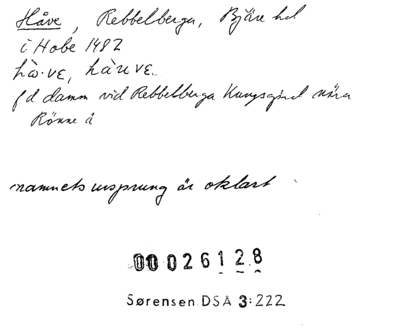 Håve, Rebbelberga, Bjäre hd
i Hobe 1482
hà·vɛ, hàuvɛ.
fd damm vid Rebbelberga Kungsgård nära
Rönne å
namnets ursprung är oklart
00026128
Sørensen DSÅ 3:222